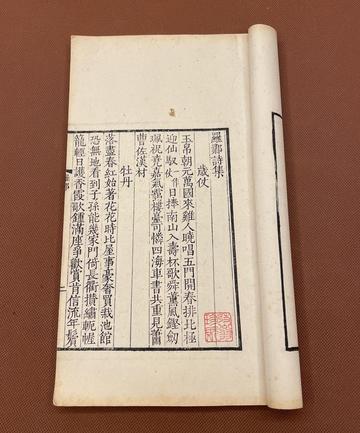 羅鄴詩集
歲仗
玉帛朝元萬國來雞人曉唱五門開春排北極
迎仙馭日捧南山入壽杯歌舜薰風鏗劍
珮祝堯嘉氣靄樓臺可憐四海車書共重見蕭
曹佐漢材
牡丹
落盡春紅始著花花時比屋事豪奢買栽池館
恐無地看到子孫能幾家門倚長衢攢繡軛幄
籠輕日護香霞歌鍾滿座爭歡賞肯信流年鬢